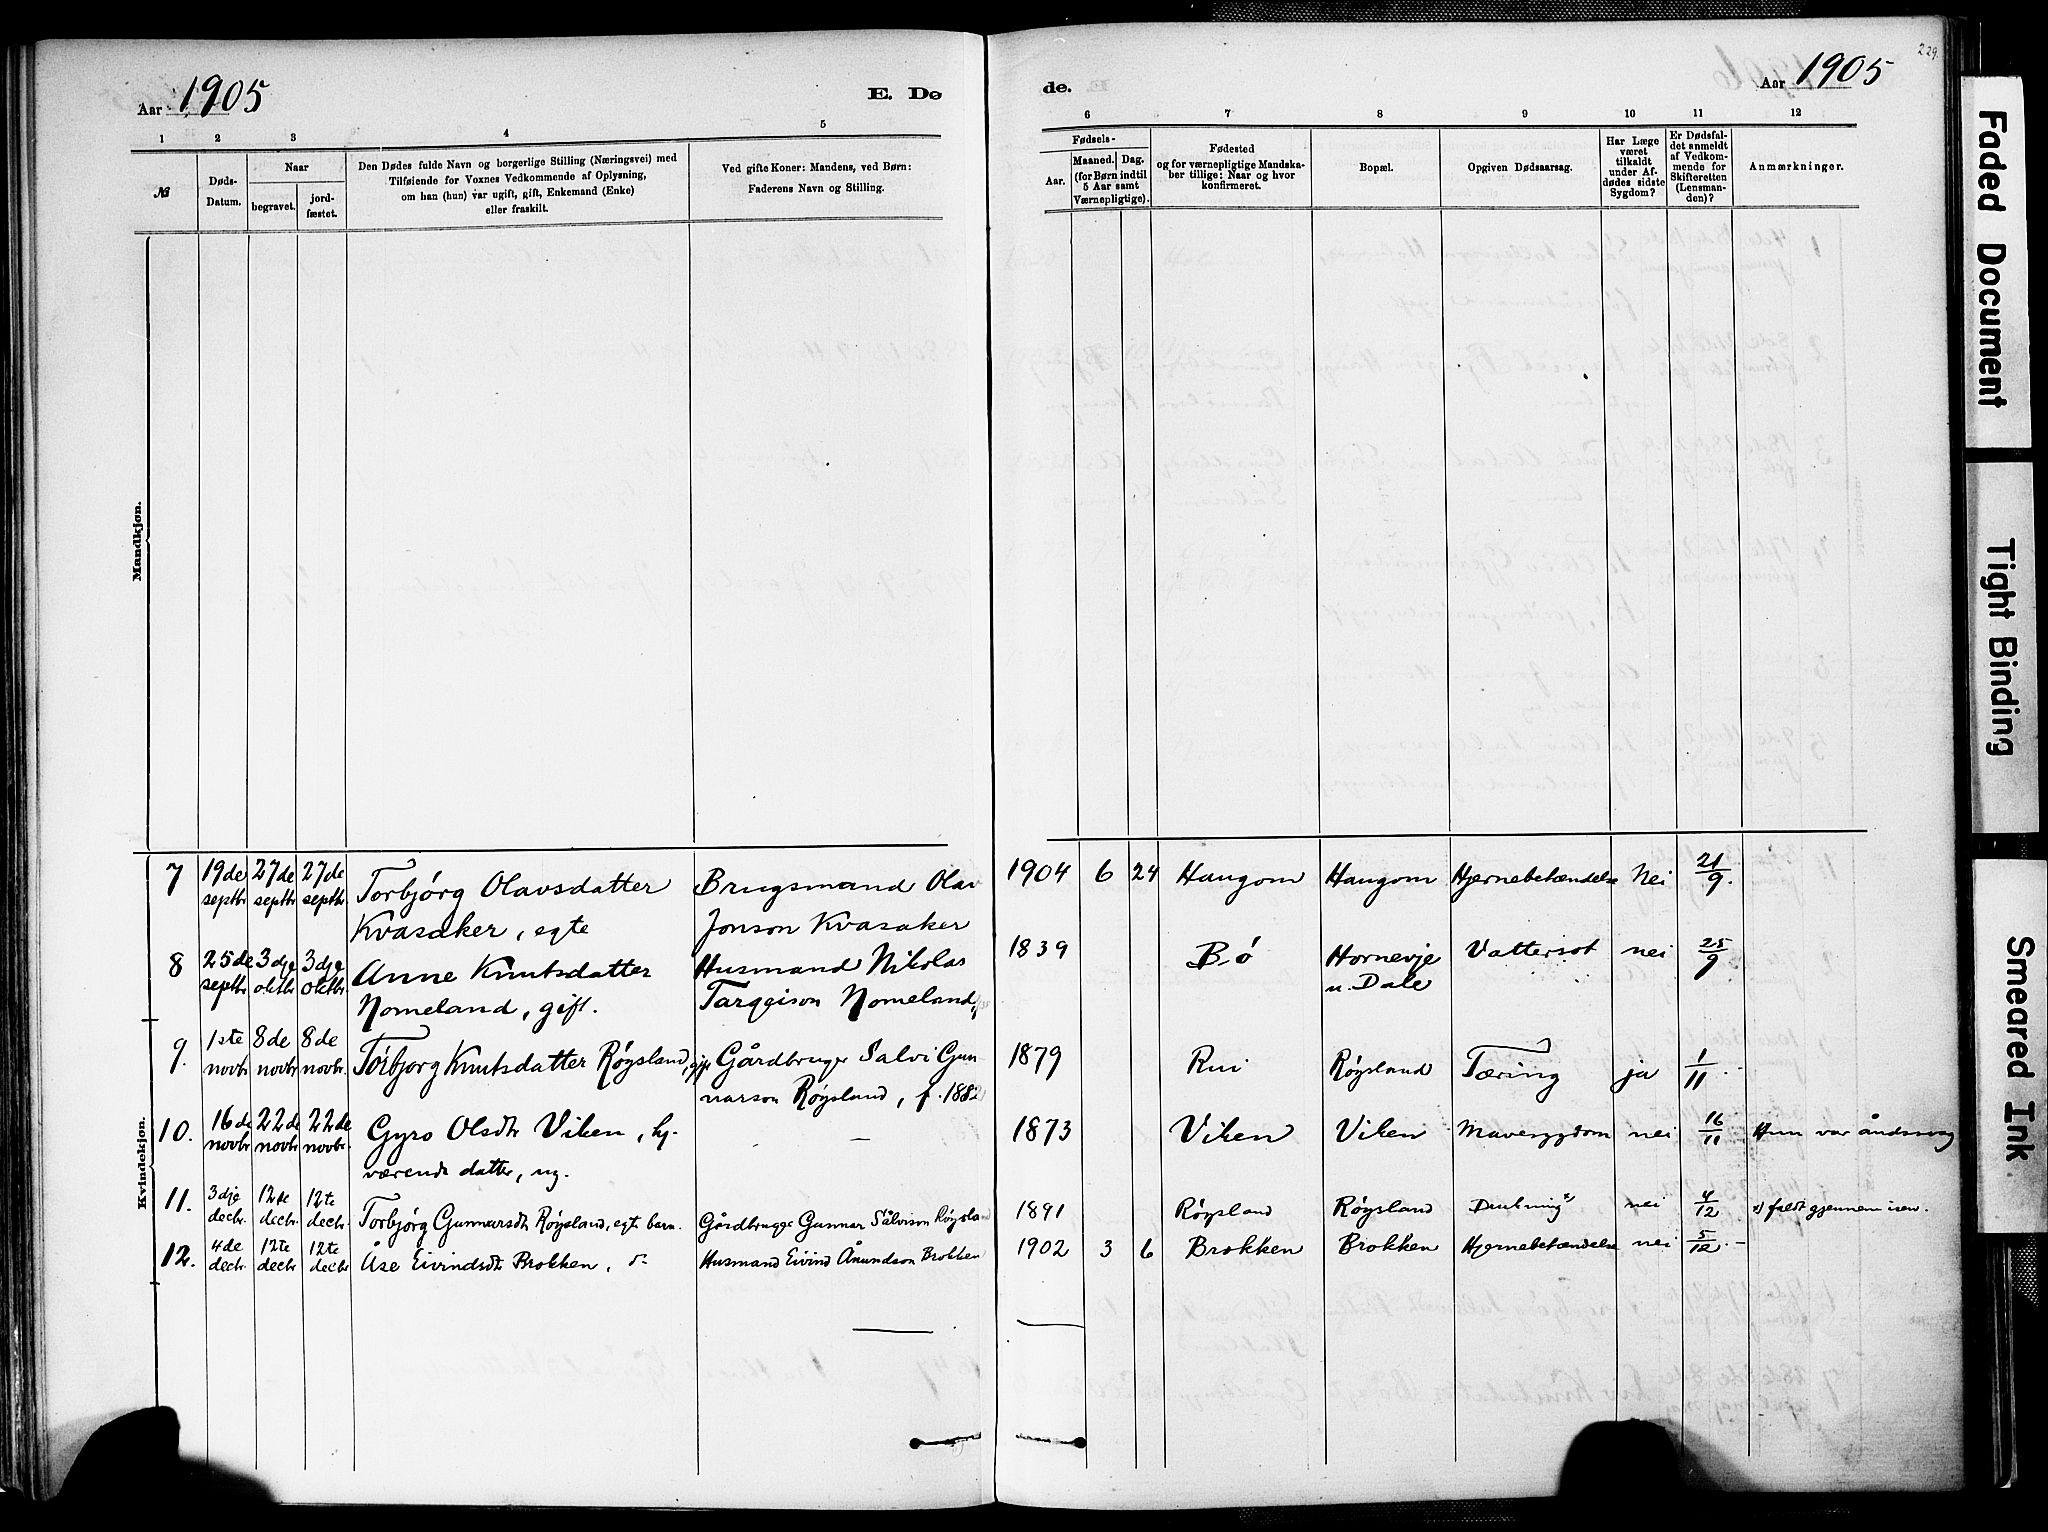 229
Aar 1905
E. Dø
de.
Aar 1905
1 2 3 4 5 6 7 8 9 10 11 12
№
Døds-
Datum.
Naar
begravet.
jord-
fæstet.
Den Dødes fulde Navn og borgerlige Stilling (Næringsvei) med
Tilføiende for Voxnes Vedkommende af Oplysning,
om han (hun) var ugift, gift, Enkemand (Enke)
eller fraskilt.
Ved gifte Koner: Mandens, ved Børn:
Faderens Navn og Stilling.
Fødsels-
Aar.
Maaned. Dag.
(for Børn indtil
5 Aar samt
Værnepligtige).
Fødested
og for værnepligtige Mandska-
ber tillige: Naar og hvor
konfirmeret.
Bopæl.
Opgiven Dødsaarsag.
Har Læge
været
tilkaldt
under Af-
dødes sidste
Sygdom?
Er Dødsfal-
det anmeldt
af Vedkom-
mende for
Skifteretten
(Lensman-
den)?
Anmærkninger.
Mandkjøn.
Kvindekjøn.
7 19de septbr 27de septbr 27de septbr. Torbjørg Olavsdatter Brugsmand Olav 1904 6 24 Haugom Haugom Hjernebetændelse Nei 21/9.
Kvasaker, egte Jonson Kvasaker
8 25de septbr 3dje oktbr 3dje oktbr. Anne Knutsdatter Husmand Nikolas 1839 Bø Hornevje Vattersot nei 25/9
Nomeland, gift. Targgison Nomeland, u. Dale
9. 1ste novbr 8de novbr 8de novbr. Torbjorg Knutsdatter Røysland, gift Gårdbruger Salvi Gun- 1879 Rui Røysland Tæring ja 1/11
narson Røysland, f. 1882
10. 16de novbr 22de novbr 22de novbr. Gyro Olsdtr Viken, hj. — 1873 Viken Viken Mavesygdom nei 16/11 Hun var åndssvag
værende datter, ug.
11. 3dje decbr. 12te decbr. 12te decbr. Torbjørg Gunnarsdtr Røysland, egte barn. Gårdbruger Gunnar Sålvison Røysland 1891 Røysland Røysland Drukning x) nei 4/12 x) faldt gjennem isen.
12. 4de decbr. 12te decbr 12te decbr. Åse Eivindsdtr Brokken, Husmand Eivind Åmundson Brokken 1902 3 6 Brokken Brokken Hjernebetændelse nei 5/12
Faded Document
Tight Binding
Smeared Ink